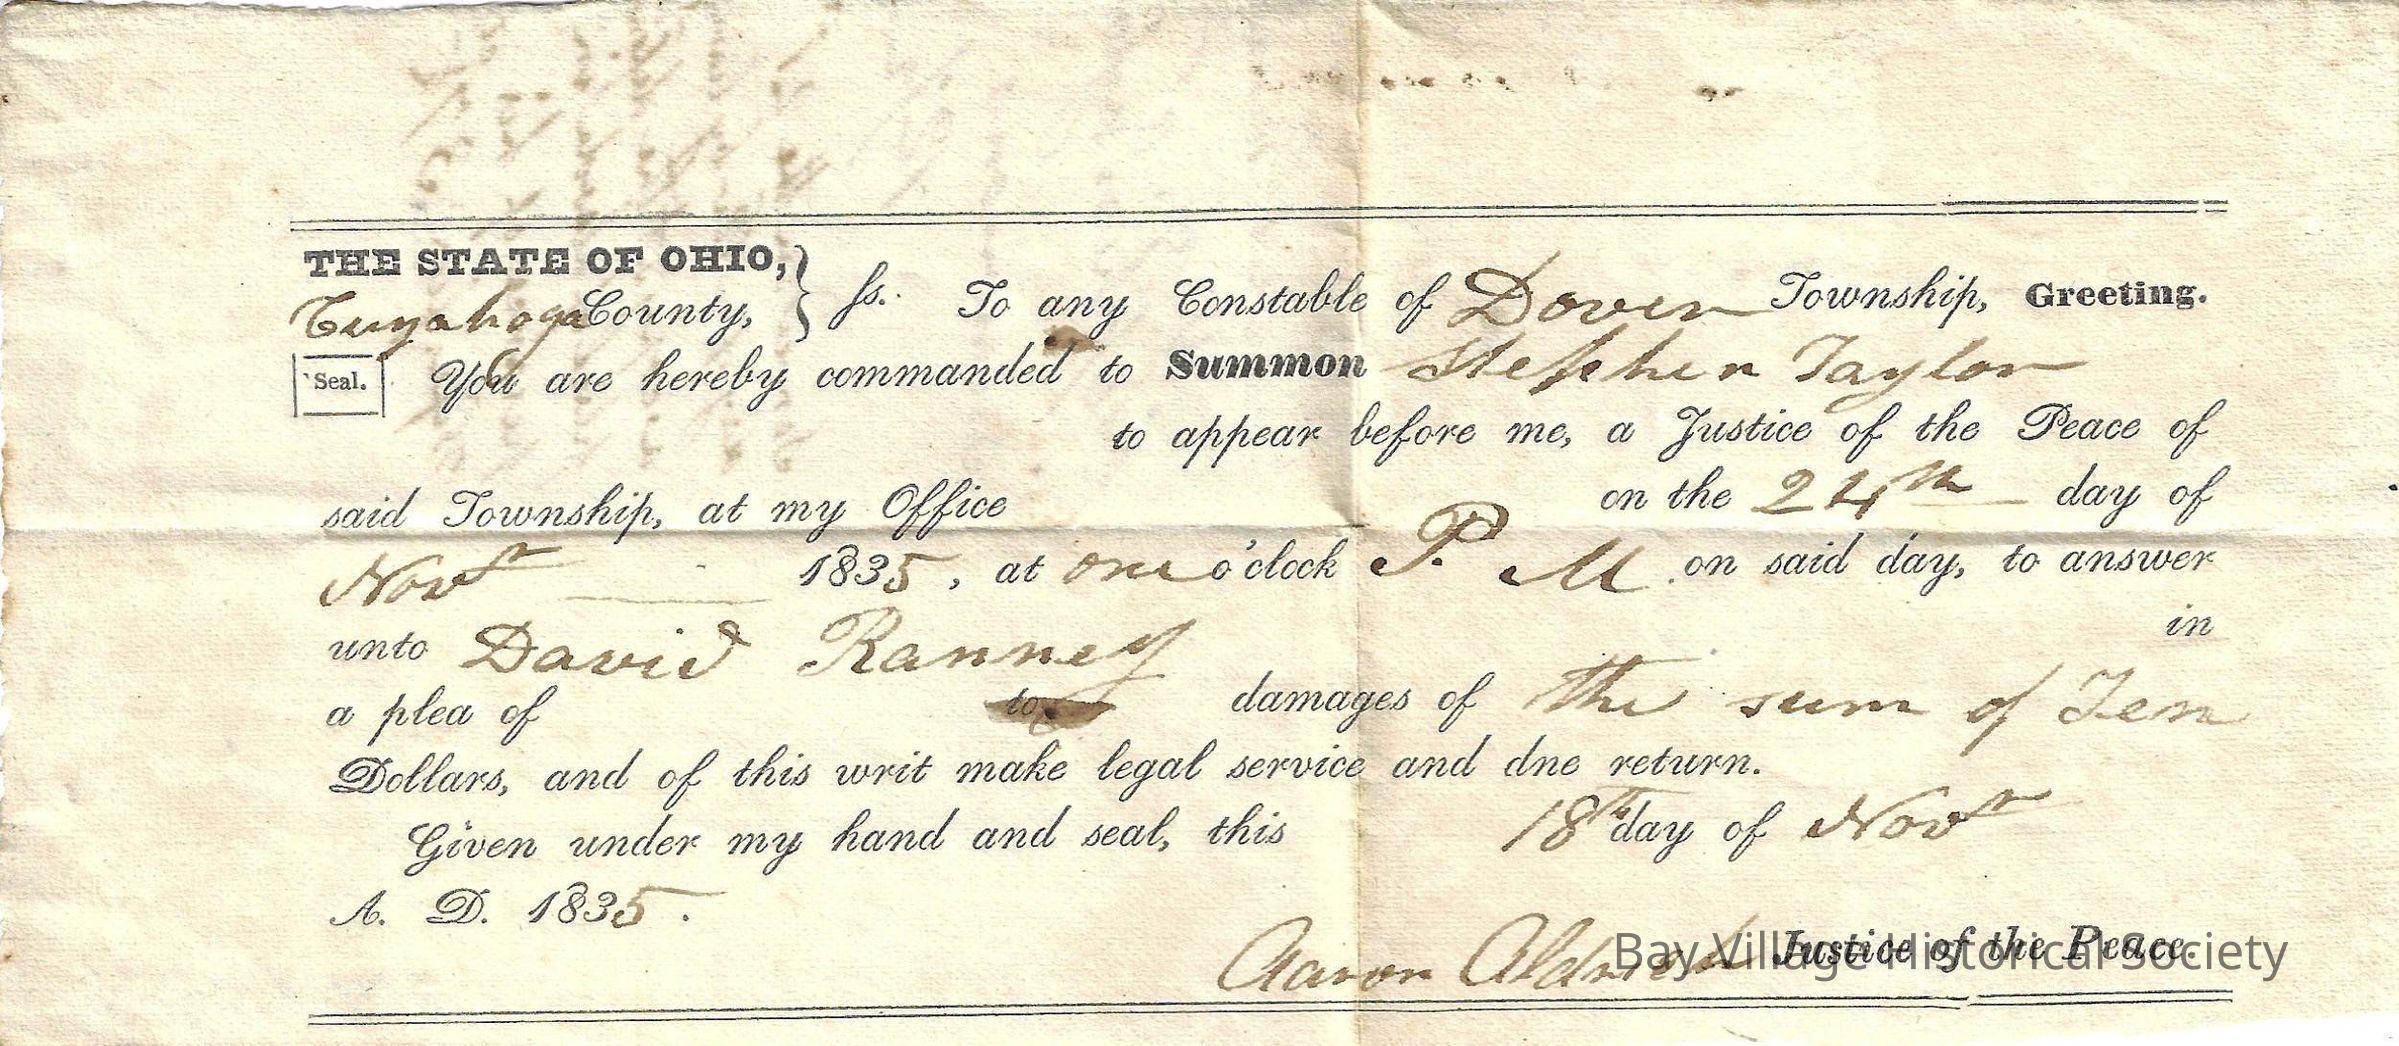 THE STATE OF OHIO,
Cuyahoga County, } ss. To any Constable of Dover Township, Greeting.
Seal. You are hereby commanded to Summon Stephen Taylor
to appear before me, a Justice of the Peace of
said Township, at my Office on the 24th day of
Novr 1835, at one o'clock P. M. on said day, to answer
unto David Ranney in
a plea of to damages of the sum of Ten
Dollars, and of this writ make legal service and dne return.
Given under my hand and seal, this 18th day of Novr
A. D. 1835.
Aaron Aldrich Justice of the Peace.
Bay Village Historical Society